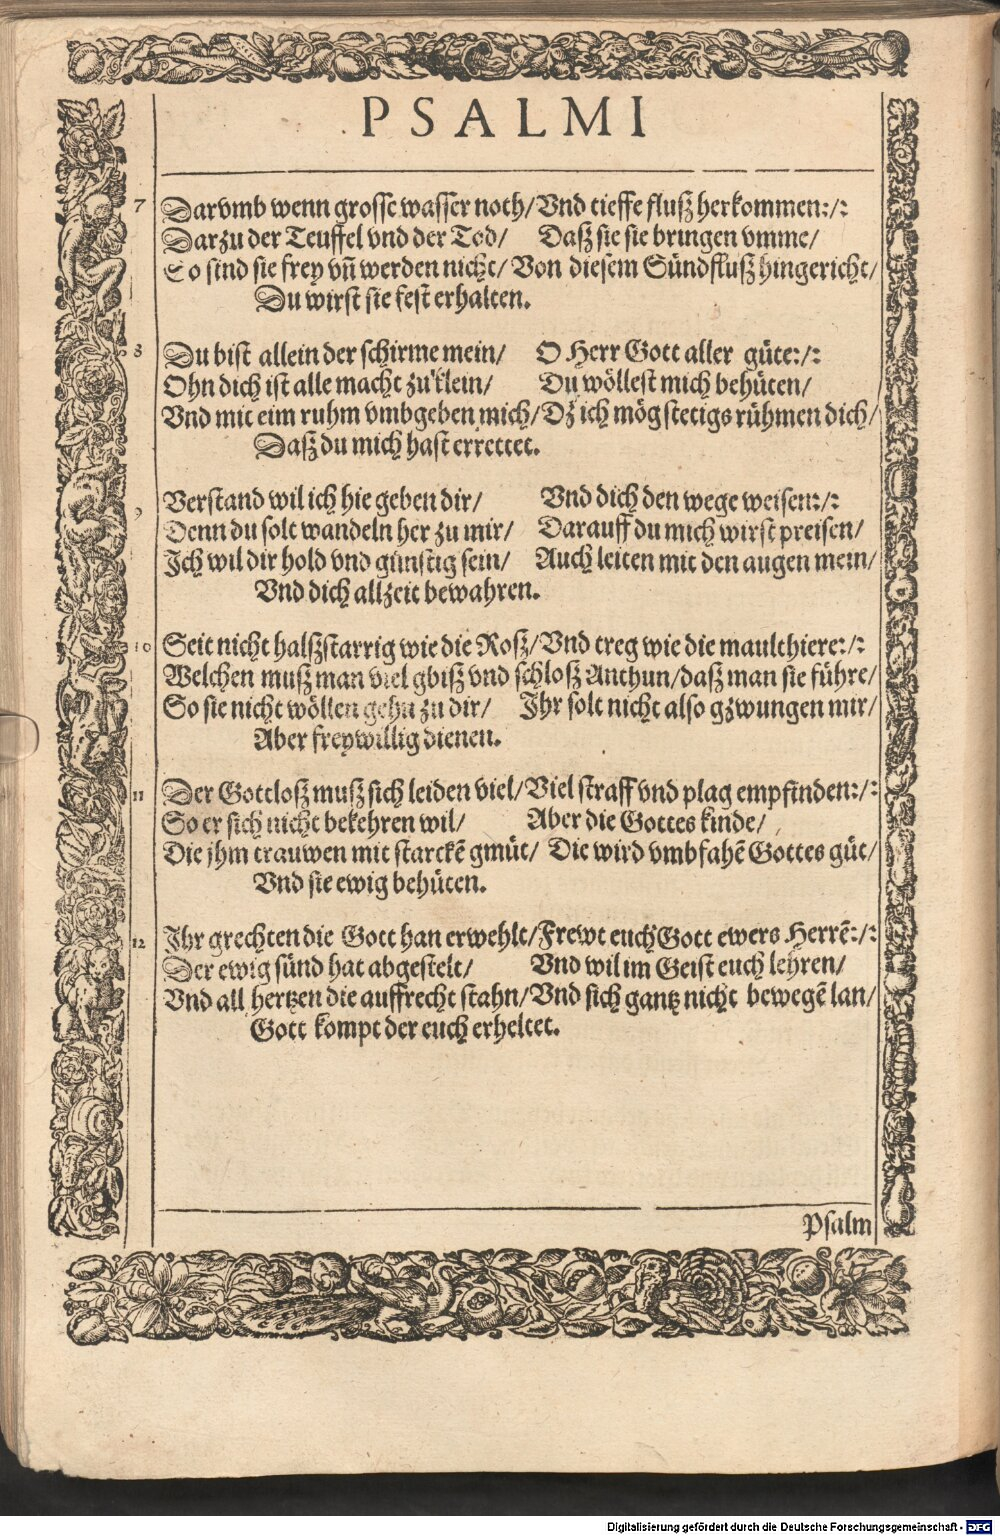 PSALMI
7 Darvmb wenn grosse wasser noch/ Vnd tieffe flusz herkommen:/:
Darzu der Teuffel vnd der Tod/ Dasz sie sie bringen vmme/
So sind sie frey vñ werden nicht/ Von diesem Sündflusz hingericht/
Du wirst sie fest erhalten.
8 Du bist allein der schirme mein/ O Herr Gott aller güte:/:
Ohn dich ist alle macht zu klein/ Du wöllest mich behüten/
Vnd mit eim ruhm vmbgeben mich/ Dz ich mög stetigs rühmen dich/
Dasz du mich hast errettet.
9 Verstand wil ich hie geben dir/ Vnd dich den wege weisen:/:
Denn du solt wandeln her zu mir/ Darauff du mich wirst preisen/
Ich wil dir hold vnd günstig sein/ Auch leiten mit den augen mein/
Vnd dich allzeit bewahren.
10 Seit nicht halszstarrig wie die Rosz/ Vnd treg wie die maulthiere:/:
Welchen musz man viel gbisz vnd schlosz Anthun/ dasz man sie führe/
So sie nicht wöllen gehn zu dir/ Ihr solt nicht also gzwungen mir/
Aber freywillig dienen.
11 Der Gottlosz musz sich leiden viel/ Viel straff vnd plag empfinden:/:
So er sich nicht bekehren wil/ Aber die Gottes kinde/
Die jhm trauwen mit starckẽ gmüt/ Die wird vmbfahẽ Gottes güt/
Vnd sie ewig behüten.
12 Ihr grechten die Gott han erwehlt/ Frewt euch Gott ewers Herrẽ:/:
Der ewig sünd hat abgestelt/ Vnd wil im Geist euch lehren/
Vnd all hertzen die auffrecht stahn/ Vnd sich gantz nicht bewegẽ lan/
Gott kompt der euch erheltet.
Psalm
Digitalisierung gefördert durch die Deutsche Forschungsgemeinschaft - DFG